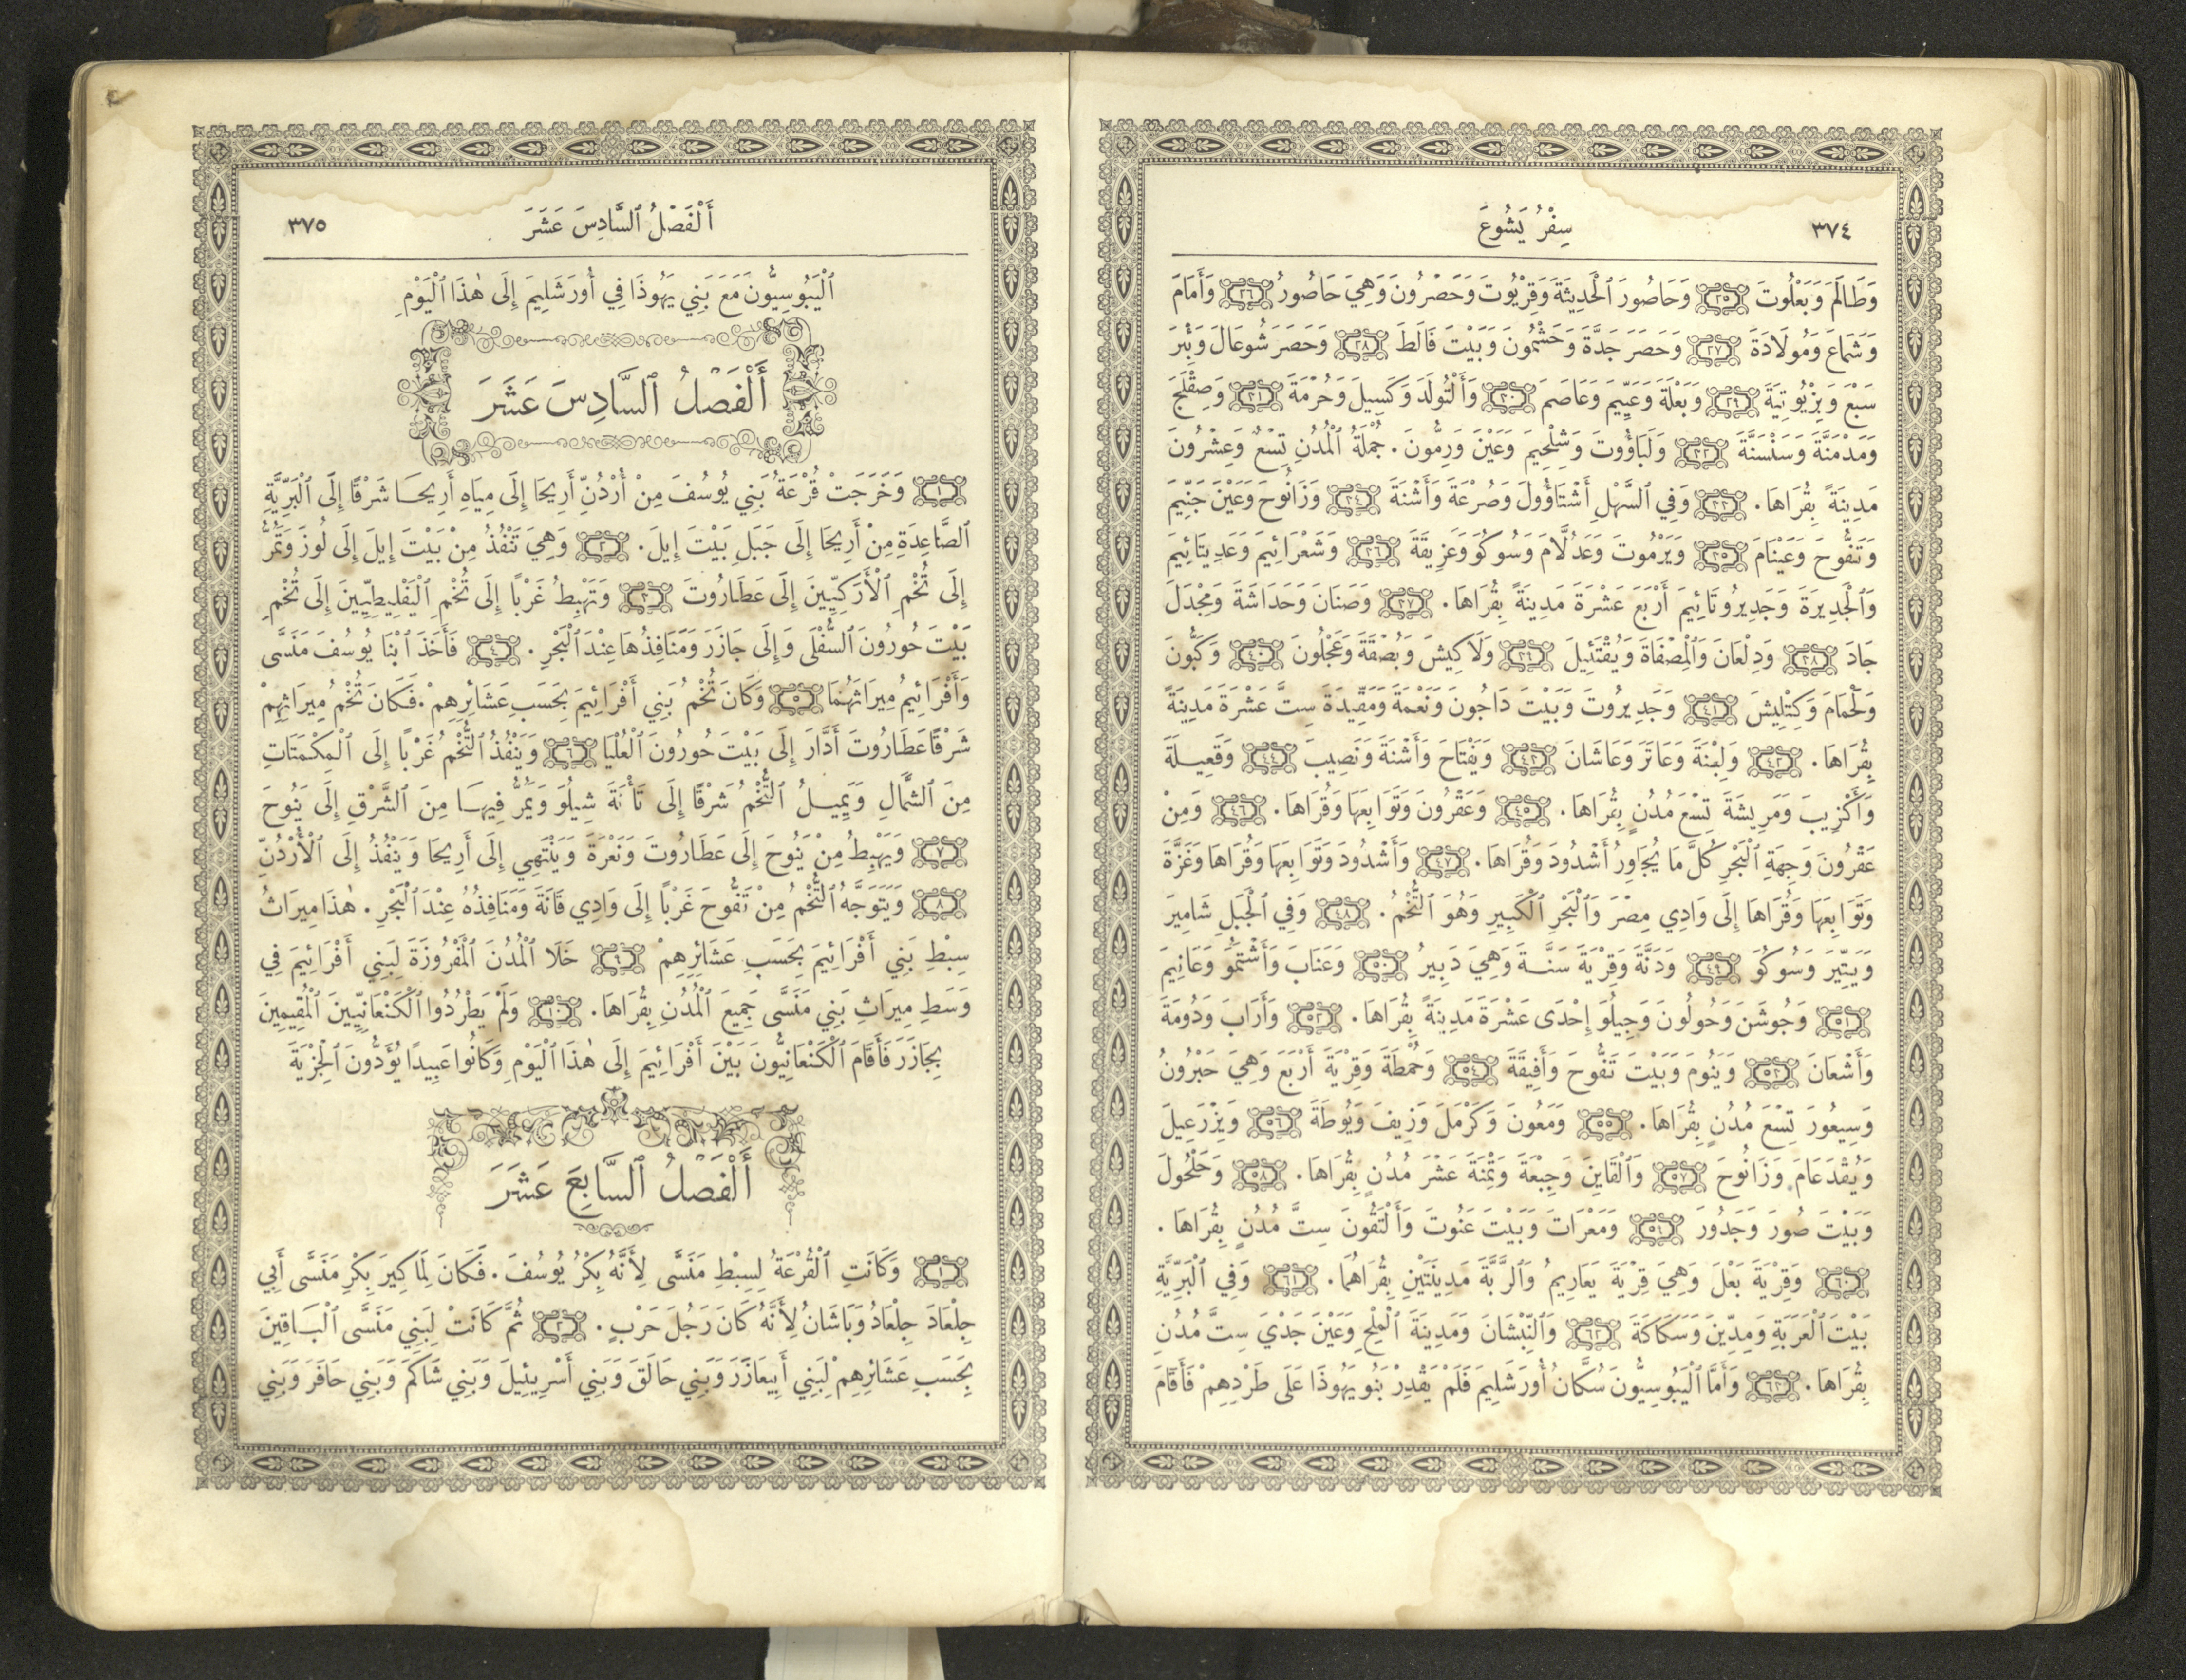 ٣٧٤
سِفْرُ يَشُوعَ
وَطَالَمَ وَبَعْلُوتَ ٢٥ وَحَاصُورَ ٱلْحَدِيثَةَ وَقِرْيُوتَ وَحَصْرُونَ وَهِيَ حَاصُورُ ٢٦ وَأَمَامَ
وَشَمَاعَ وَمُولَادَةَ ٢٧ وَحَصَرَ جَدَّةَ وَحَشْمُونَ وَبَيْتَ فَالَطَ ٢٨ وَحَصَرَ شُوعَالَ وَبِئْرَ
سَبْعَ وَبِزْيُوتِيَةَ ٢٩ وَبَعْلَةَ وَعِيِّيمَ وَعَاصَمَ ٣٠ وَأَلْتُولَدَ وَكَسِيلَ وَحُرْمَةَ ٣١ وَصِقْلَجَ
وَمَدْمَنَّةَ وَسَنْسَنَّةَ ٣٢ وَلَبَاؤُوتَ وَشِلْحِيمَ وَعَيْنَ وَرِمُّونَ. جُمْلَةُ ٱلْمُدُنِ تِسْعٌ وَعِشْرُونَ
مَدِينَةً بِقُرَاهَا. ٣٣ وَفِي ٱلسَّهْلِ أَشْتَاؤُولَ وَصُرْعَةَ وَأَشْنَةَ ٣٤ وَزَانُوحَ وَعَيْنَ جَنِّيمَ
وَتَفُّوحَ وَعَيْنَامَ ٣٥ وَيَرْمُوتَ وَعَدُلَّامَ وَسُوكُوَ وَعَزِيقَةَ ٣٦ وَشَعْرَائِيمَ وَعَدِيتَائِيمَ
وَٱلْجَدِيرَةَ وَجَدِيرُوتَائِيمَ أَرْبَعَ عَشْرَةَ مَدِينَةً بِقُرَاهَا. ٣٧ وَصَنَانَ وَحَدَاشَةَ وَمِجْدَلَ
جَادَ ٣٨ وَدِلْعَانَ وَٱلْمِصْفَاةَ وَيُقْتَئِيلَ ٣٩ وَلَاكِيشَ وَبُصْقَةَ وَعَجْلُونَ ٤٠ وَكَبُّونَ
وَلَحْمَامَ وَكِتْلِيشَ ٤١ وَجَدِيرُوتَ وَبَيْتَ دَاجُونَ وَنَعْمَةَ وَمَقِّيدَةَ سِتَّ عَشْرَةَ مَدِينَةً
بِقُرَاهَا. ٤٢ وَلِبْنَةَ وَعَاتَرَ وَعَاشَانَ ٤٣ وَيَفْتَاحَ وَأَشْنَةَ وَنَصِيبَ ٤٤ وَقَعِيلَةَ
وَأَكْزِيبَ وَمَرِيشَةَ تِسْعَ مُدُنٍ بِقُرَاهَا. ٤٥ وَعَقْرُونَ وَتَوَابِعَهَا وَقُرَاهَا. ٤٦ وَمِنْ
عَقْرُونَ وَجِهَةِ ٱلْبَحْرِ كُلَّ مَا يُجَاوِرُ أَشْدُودَ وَقُرَاهَا. ٤٧ وَأَشْدُودَ وَتَوَابِعَهَا وَقُرَاهَا وَغَزَّةَ
وَتَوَابِعَهَا وَقُرَاهَا إِلَى وَادِي مِصْرَ وَٱلْبَحْرِ ٱلْكَبِيرِ وَهُوَ ٱلتُّخْمُ. ٤٨ وَفِي ٱلْجَبَلِ شَامِيرَ
وَيَتِّيرَ وَسُوكُوَ ٤٩ وَدَنَّةَ وَقِرْيَةَ سَنَّةَ وَهِيَ دَبِيرُ ٥٠ وَعَنَابَ وَأَشْتَمُوَ وَعَانِيمَ
٥١ وَجُوشَنَ وَحُولُونَ وَجِيلُوَ إِحْدَى عَشْرَةَ مَدِينَةً بِقُرَاهَا. ٥٢ وَأَرَابَ وَدُومَةَ
وَأَشْعَانَ ٥٣ وَيَنُومَ وَبَيْتَ تَفُّوحَ وَأَفِيقَةَ ٥٤ وَحُمْطَةَ وَقِرْيَةَ أَرْبَعَ وَهِيَ حَبْرُونُ
وَسِيعُورَ تِسْعَ مُدُنٍ بِقُرَاهَا. ٥٥ وَمَعُونَ وَكَرْمَلَ وَزِيفَ وَيُوطَةَ ٥٦ وَيِزْرَعِيلَ
وَيُقْدَعَامَ وَزَانُوحَ ٥٧ وَٱلْقَايِنَ وَجِبْعَةَ وَتِمْنَةَ عَشْرَ مُدُنٍ بِقُرَاهَا. ٥٨ وَحَلْحُولَ
وَبَيْتَ صُورَ وَجَدُورَ ٥٩ وَمَعْرَاتَ وَبَيْتَ عَنُوتَ وَأَلْتَقُونَ سِتَّ مُدُنٍ بِقُرَاهَا.
٦٠ وَقِرْيَةَ بَعْلَ وَهِيَ قِرْيَةَ يَعَارِيمُ وَٱلرَّبَّةَ مَدِينَتَيْنِ بِقُرَاهُمَا. ٦١ وَفِي ٱلْبَرِّيَّةِ
بَيْتَ ٱلْعَرَبَةِ وَمِدِّينَ وَسَكَاكَةَ ٦٢ وَٱلنِّبْشَانَ وَمَدِينَةَ ٱلْمِلْحِ وَعَيْنَ جَدْيَ سِتَّ مُدُنٍ
بِقُرَاهَا. ٦٣ وَأَمَّا ٱلْيَبُوسِيُّونَ سُكَّانُ أُورَشَلِيمَ فَلَمْ يَقْدِرْ بَنُو يَهُوذَا عَلَى طَرْدِهِمْ فَأَقَامَ
أَلْفَصْلُ ٱلسَّادِسَ عَشَرَ
٣٧٥
ٱلْيَبُوسِيُّونَ مَعَ بَنِي يَهُوذَا فِي أُورَشَلِيمَ إِلَى هٰذَا ٱلْيَوْمِ
أَلْفَصْلُ ٱلسَّادِسَ عَشَرَ
١ وَخَرَجَتْ قُرْعَةُ بَنِي يُوسُفَ مِنْ أُرْدُنِّ أَرِيحَا إِلَى مِيَاهِ أَرِيحَا شَرْقًا إِلَى ٱلْبَرِّيَّةِ
ٱلصَّاعِدَةِ مِنْ أَرِيحَا إِلَى جَبَلِ بَيْتَ إِيلَ. ٢ وَهِيَ تَنْفُذُ مِنْ بَيْتَ إِيلَ إِلَى لُوزَ وَتَمُرُّ
إِلَى تُخْمِ ٱلْأَرَكِيِّينَ إِلَى عَطَارُوتَ ٣ وَتَهْبِطُ غَرْبًا إِلَى تُخْمِ ٱلْيَفْلِيطِيِّينَ إِلَى تُخْمِ
بَيْتَ حُورُونَ ٱلسُّفْلَى وَإِلَى جَازَرَ وَمَنَافِذُهَا عِنْدَ ٱلْبَحْرِ. ٤ فَأَخَذَ ٱبْنَا يُوسُفَ مَنَسَّى
وَأَفْرَائِيمُ مِيرَاثَهُمَا ٥ وَكَانَ تُخْمُ بَنِي أَفْرَائِيمَ بِحَسَبِ عَشَائِرِهِمْ. فَكَانَ تُخْمُ مِيرَاثِهِمْ
شَرْقًا عَطَارُوتَ أَدَّارَ إِلَى بَيْتَ حُورُونَ ٱلْعُلْيَا ٦ وَيَنْفُذُ ٱلتُّخْمُ غَرْبًا إِلَى ٱلْمَكْمَتَاتِ
مِنَ ٱلشَّمَالِ وَيَمِيلُ ٱلتُّخْمُ شَرْقًا إِلَى تَأْنَةَ شِيلُوَ وَيَمُرُّ فِيهَا مِنَ ٱلشَّرْقِ إِلَى يَنُوحَ
٧ وَيَهْبِطُ مِنْ يَنُوحَ إِلَى عَطَارُوتَ وَنَعْرَةَ وَيَنْتَهِي إِلَى أَرِيحَا وَيَنْفُذُ إِلَى ٱلْأُرْدُنِّ
٨ وَيَتَوَجَّهُ ٱلتُّخْمُ مِنْ تَفُّوحَ غَرْبًا إِلَى وَادِي قَانَةَ وَمَنَافِذُهُ عِنْدَ ٱلْبَحْرِ. هٰذَا مِيرَاثُ
سِبْطِ بَنِي أَفْرَائِيمَ بِحَسَبِ عَشَائِرِهِمْ ٩ خَلَا ٱلْمُدُنَ ٱلْمَفْرُوزَةَ لِبَنِي أَفْرَائِيمَ فِي
وَسَطِ مِيرَاثِ بَنِي مَنَسَّى جَمِيعَ ٱلْمُدُنِ بِقُرَاهَا. ١٠ وَلَمْ يَطْرُدُوا ٱلْكَنْعَانِيِّينَ ٱلْمُقِيمِينَ
بِجَازَرَ فَأَقَامَ ٱلْكَنْعَانِيُّونَ بَيْنَ أَفْرَائِيمَ إِلَى هٰذَا ٱلْيَوْمِ وَكَانُوا عَبِيدًا يُؤَدُّونَ ٱلْجِزْيَةَ
أَلْفَصْلُ ٱلسَّابِعَ عَشَرَ
١ وَكَانَتِ ٱلْقُرْعَةُ لِسِبْطِ مَنَسَّى لِأَنَّهُ بِكْرُ يُوسُفَ. فَكَانَ لِمَاكِيرَ بِكْرِ مَنَسَّى أَبِي
جِلْعَادَ جِلْعَادُ وَبَاشَانُ لِأَنَّهُ كَانَ رَجُلَ حَرْبٍ. ٢ ثُمَّ كَانَتْ لِبَنِي مَنَسَّى ٱلْبَاقِينَ
بِحَسَبِ عَشَائِرِهِمْ لِبَنِي أَبِيعَازَرَ وَبَنِي حَالَقَ وَبَنِي أَسْرِيئِيلَ وَبَنِي شَاكَمَ وَبَنِي حَافَرَ وَبَنِي